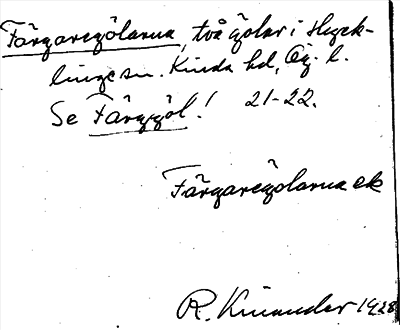 Färgaregölarna, två gölar i Hyck-
linge sn. Kinda hd, Ög. l.
Se Färggöl! 21-22.
Färgaregölarna ek
R. Kinander 1928